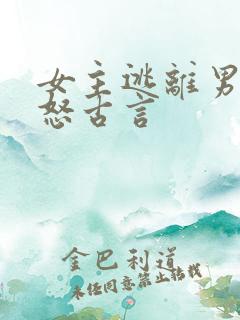 女主逃離男
怒古言
金巴利道
未任同意禁止转载